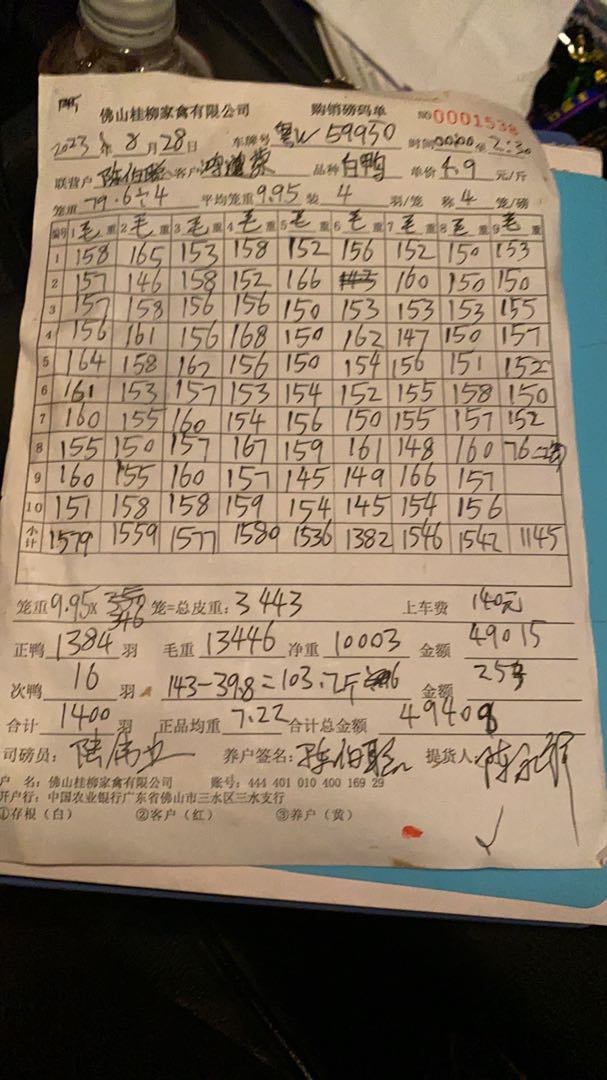 佛山桂柳家禽有限公司 购销磅码单 NO 0001538
2023年8月28日 车牌号 粤W 59930 时间00:00至2:30
联营户 陈伯聪 客户 品种 白鸭 单价 4.9 元/斤
笼重 79.6÷4 平均笼重 9.95 装 4 羽/笼 称 4 笼/磅
编号 1毛重 2毛重 3毛重 4毛重 5毛重 6毛重 7毛重 8毛重 9毛重
1 158 165 153 158 152 156 152 150 153
2 157 146 158 152 166 143 160 150 150
3 157 158 156 156 150 153 153 153 155
4 156 161 156 168 150 162 147 150 157
5 164 158 162 156 150 154 156 151 152
6 161 153 157 153 154 152 155 158 150
7 160 155 160 154 156 150 155 157 152
8 155 150 157 167 159 161 148 160 76
9 160 155 160 157 145 149 166 157
10 151 158 158 159 154 145 154 156
小计 1579 1559 1577 1580 1536 1382 1546 1542 1145
笼重 9.95 X 350 346 笼=总皮重: 3443 上车费 140元
正鸭 1384 羽 毛重 13446 净重 10003 金额 49015
次鸭 16 羽 143-39.8=103.2斤 金额 253
合计 1400 羽 正品均重 7.22 合计总金额 49408
司磅员: 养户签名: 陈伯聪 提货人:
户 名: 佛山桂柳家禽有限公司 账号: 444 401 010 400 169 29
开户行: 中国农业银行广东省佛山市三水区三水支行
①存根(白) ②客户(红) ③养户(黄)